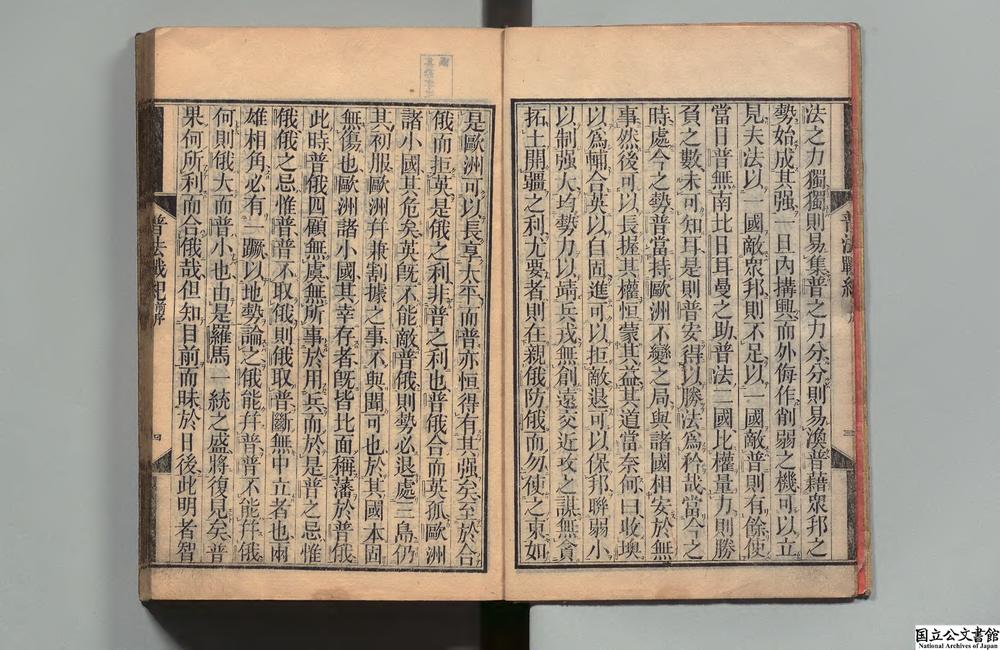 法之力獨獨則易集普之力分分則易渙普藉眾邦之
勢始成其强一旦內搆興而外侮作削弱之機可以立
見夫法以一國敵眾邦則不足以一國敵普則有餘使
當日普無南北日耳曼之助普法二國比權量力則勝
負之數未可知耳是則普安得以勝法爲矜哉當今之
時處今之勢普當持歐洲不變之局與諸國相安於無
事然後可以長握其權恒蒙其益其道當奈何曰收墺
以爲輔合英以自固進可以拒敵退可以保邦聯弱小
以制强大均勢力以靖兵戎無創遠交近攻之謀無貪
拓土開疆之利尤要者則在親俄防俄而勿使之東如
普法戰紀
三
是歐洲可以長享太平而普亦恒得有其强矣至於合
俄而拒英是俄之利非普之利也普俄合而英孤歐洲
諸小國其危矣英旣不能敵普俄則勢必退處三島仍
其初服歐洲幷兼割據之事不與聞可也於其國本固
無傷也歐洲諸小國其幸存者旣皆北面稱藩於普俄
此時普俄四顧無虞無所事於用兵而於是普之忌惟
俄俄之忌惟普普不取俄則俄取普斷無中立者也兩
雄相角必有一蹶以地勢論之俄能幷普普不能幷俄
何則俄大而普小也由是羅馬一統之盛將復見矣普
果何所利而合俄哉但知目前而昧於日後此明者智
普法戰紀 前序
四
国立公文書館
National Archives of Japan